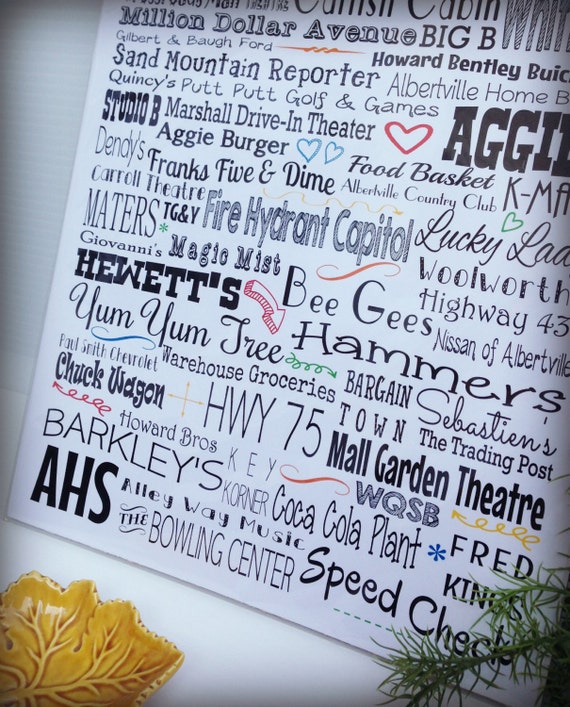 Cabin
Million Dollar Avenue BIG B
Gilbert & Baugh Ford
Howard Bentley Buic
Sand Mountain Reporter
Albertville Home B
Quincy's Putt Putt Golf & Games
STUDIO B Marshall Drive-In Theater
AGGIE
Dendy's Aggie Burger
Food Basket
Franks Five & Dime
K-MA
Carroll Theatre
Albertville Country Club
MATERS TG&Y Fire Hydrant Capitol
Lucky Lad
Giovanni's Magic Mist
Woolworth
HEWETT'S Bee Gees
Highway 43
Yum Yum Tree Hammers
Nissan of Albertville
Paul Smith Chevrolet
Warehouse Groceries
BARGAIN TOWN
Sebastien's
Chuck Wagon
HWY 75
The Trading Post
Howard Bros
Mall Garden Theatre
BARKLEY'S KEY KORNER
WQSB
AHS
Alley Way Music
Coca Cola Plant
FRED KING'S
THE BOWLING CENTER
Speed Check